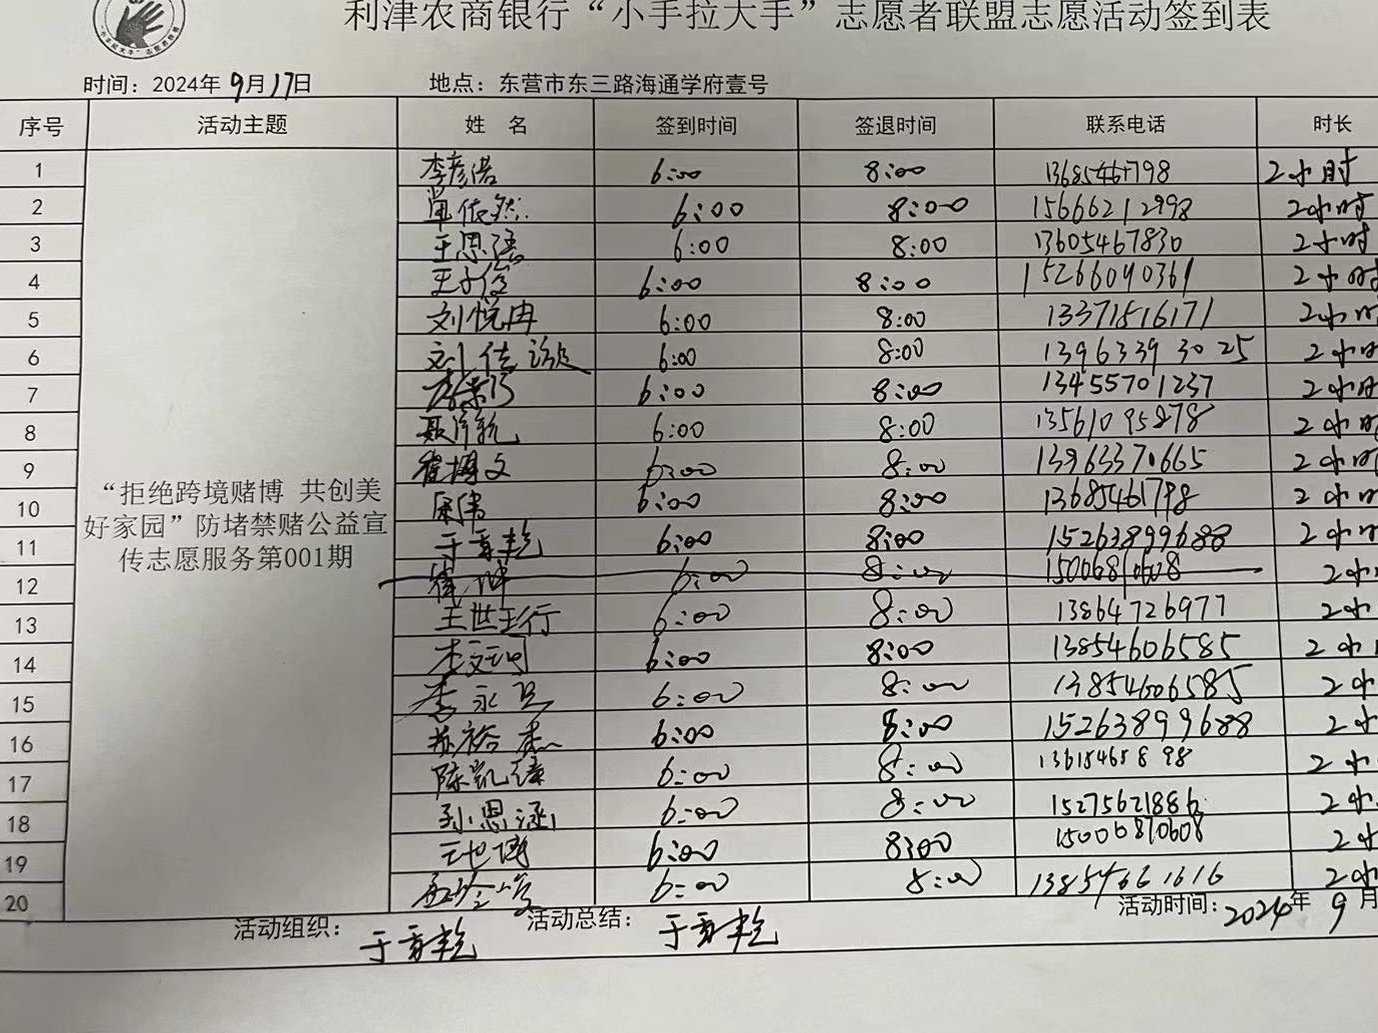 利津农商银行“小手拉大手”志愿者联盟志愿活动签到表
时间：2024年9月17日 地点：东营市东三路海通学府壹号
序号 活动主题 姓 名 签到时间 签退时间 联系电话 时长
1 李彦 6:00 8:00 2小时
2 依然 6:00 8:00 15666212998 2小时
3 王思 6:00 8:00 13605467830 2小时
4 王 6:00 8:00 15266040361 2小时
5 刘悦冉 6:00 8:00 13371516171 2小时
6 刘佳 6:00 8:00 13963393025 2小时
7 6:00 8:00 13455701237 2小时
8 聂 6:00 8:00 13561095878 2小时
9 崔博文 6:00 8:00 13963370665 2小时
“拒绝跨境赌博 共创美
好家园”防堵禁赌公益宣
传志愿服务第001期
10 6:00 8:00 13685461798 2小时
11 于 乾 6:00 8:00 15263899688 2小时
12 崔坤 6:00 8:00 15006810608 2小
13 王世珩 6:00 8:00 13864726977 2小
14 李文珂 6:00 8:00 13854606585 2小
15 李永 6:00 8:00 13854606585 2小
16 苏裕 6:00 8:00 15263899688 2小
17 陈凯 6:00 8:00 2小
18 孙思涵 6:00 8:00 15275621886 2小
19 6:00 8:00 15006810608 2小
20 6:00 8:00 13854661616 2小
活动组织： 于 乾 活动总结： 于 乾 活动时间：2024年9月